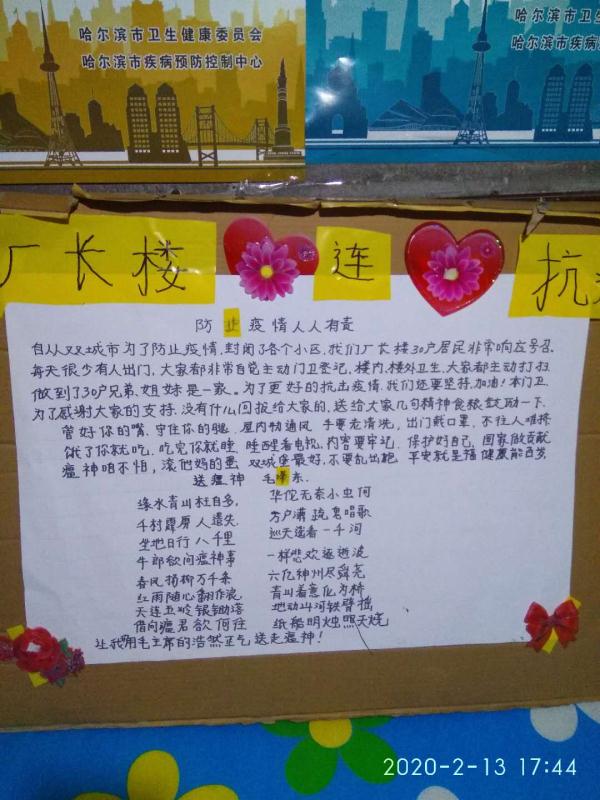 哈尔滨市卫生健康委员会
哈尔滨市疾病预防控制中心
哈尔滨市
哈尔滨市疾病
厂长楼 连 抗
防止疫情人人有责
自从双城市为了防止疫情,封闭了各个小区,我们厂长楼30户居民非常响应号召
每天很少有人出门,大家都非常自觉主动门卫登记,楼内,楼外卫生,大家都主动打扫
做到了30户兄弟、姐妹是一家。为了更好的抗击疫情,我们还要坚持,加油!本门卫
为了感谢大家的支持,没有什么回报给大家,送给大家几句精神食粮鼓励一下、
管好你的嘴,守住你的腿,屋内勤通风 手要老清洗,出门戴口罩、不往人堆挤
饿了你就吃,吃完你就睡,睡醒看电视,内容要牢记、保护好自己,国家做贡献
瘟神咱不怕,滚他妈的蛋,双城堡最好,不要乱出跑 平安就是福 健康能百岁
送瘟神 毛泽东.
绿水青山枉自多, 华佗无奈小虫何
千村霹雳人遗失, 万户萧疏鬼唱歌
坐地日行八千里 巡天遥看一千河
牛郎欲问瘟神事 一样悲欢逐逝波
春风杨柳万千条 六亿神州尽舜尧
红雨随心翻作浪 青山着意化为桥
天连五岭银锄落 地动山河铁臂摇
借问瘟君欲何往 纸船明烛照天烧
让我用毛主席的浩然正气送走瘟神!
2020-2-13 17:44